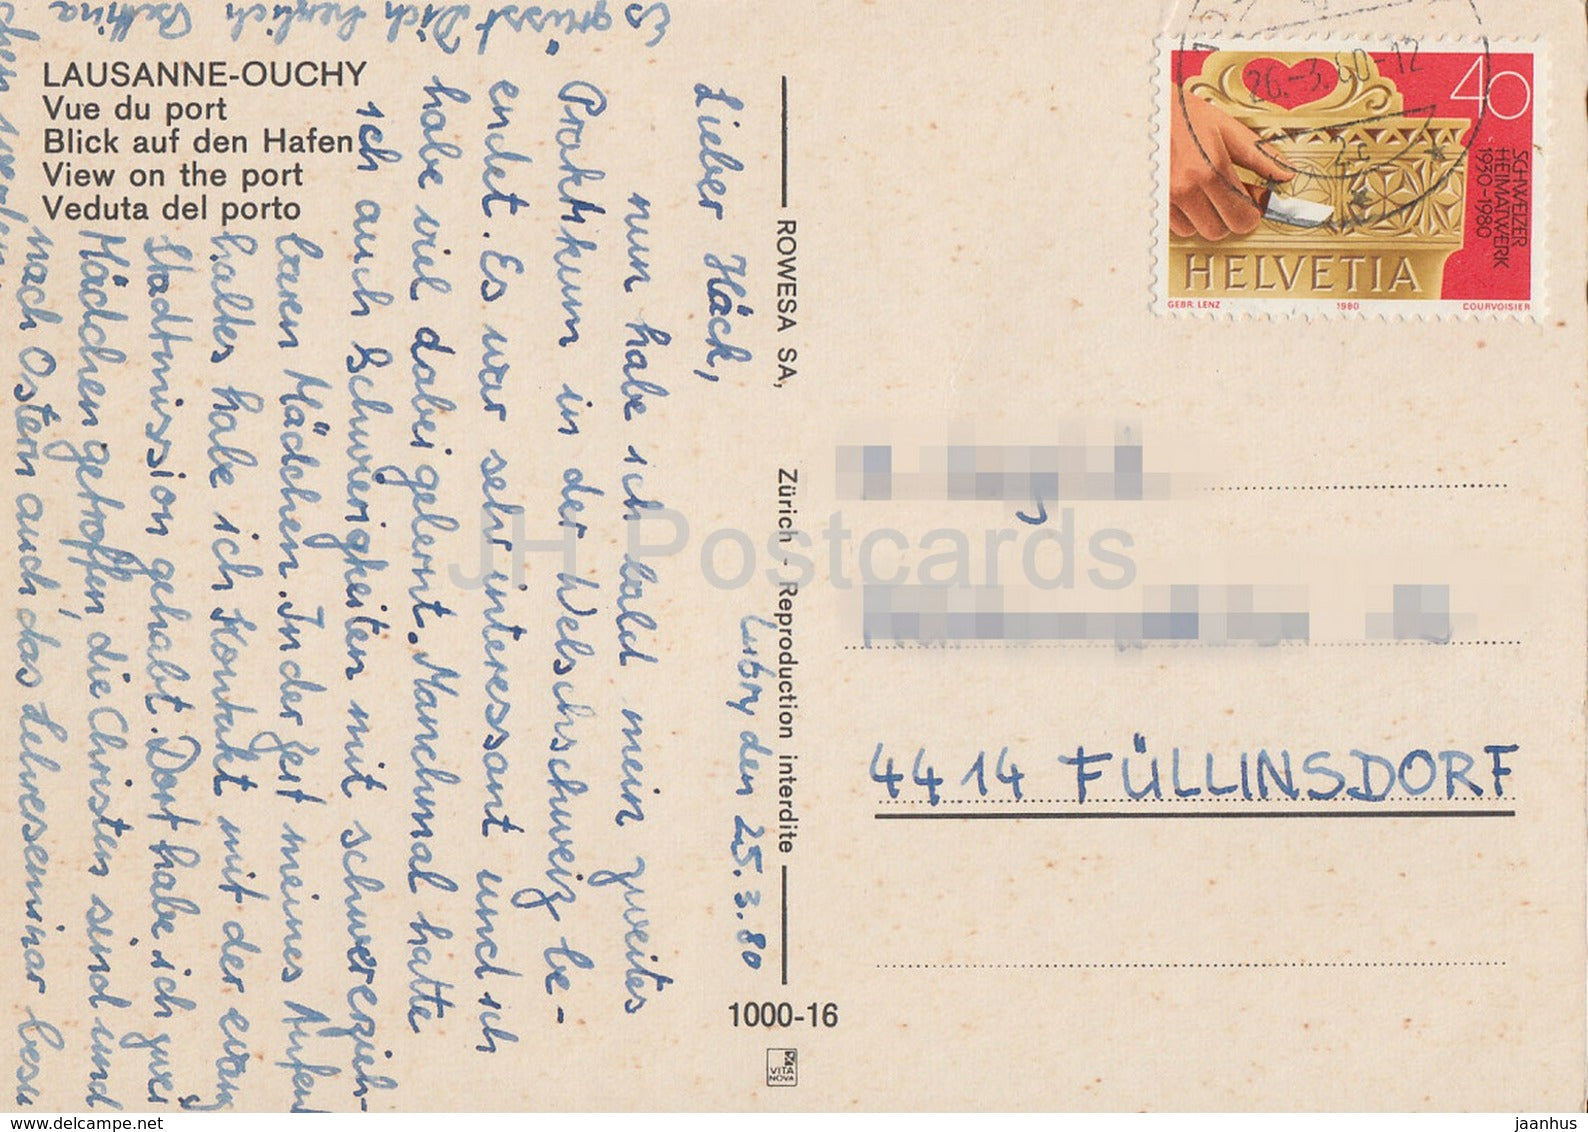 LAUSANNE-OUCHY
Vue du port
Blick auf den Hafen
View on the port
Veduta del porto
Lutry den 25.3.80
Lieber Häck,
nun habe ich bald mein zweites
Praktikum in der Welschschweiz be-
endet. Es war sehr interessant und ich
habe viel dabei gelernt. Manchmal hatte
ich auch Schwierigkeiten mit schwererzieh-
baren Mädchen. In der Zeit meines Aufent
haltes habe ich Kontakt mit der evang
Stadtmission gehabt. Dort habe ich zwei
Mädchen getroffen, die Christen sind und
nach Ostern auch das Lehrerseminar besu
chen werden
Es grüsst Dich herzlich Bettina
ROWESA SA, Zürich - Reproduction interdite
1000-16
VITA
NOVA
26.-3.80-12
40
SCHWEIZER
HEIMATWERK
1930-1980
HELVETIA
GEBR. LENZ 1980 COURVOISIER
4414 FÜLLINSDORF
JH Postcards
www.delcampe.net
jaanhus